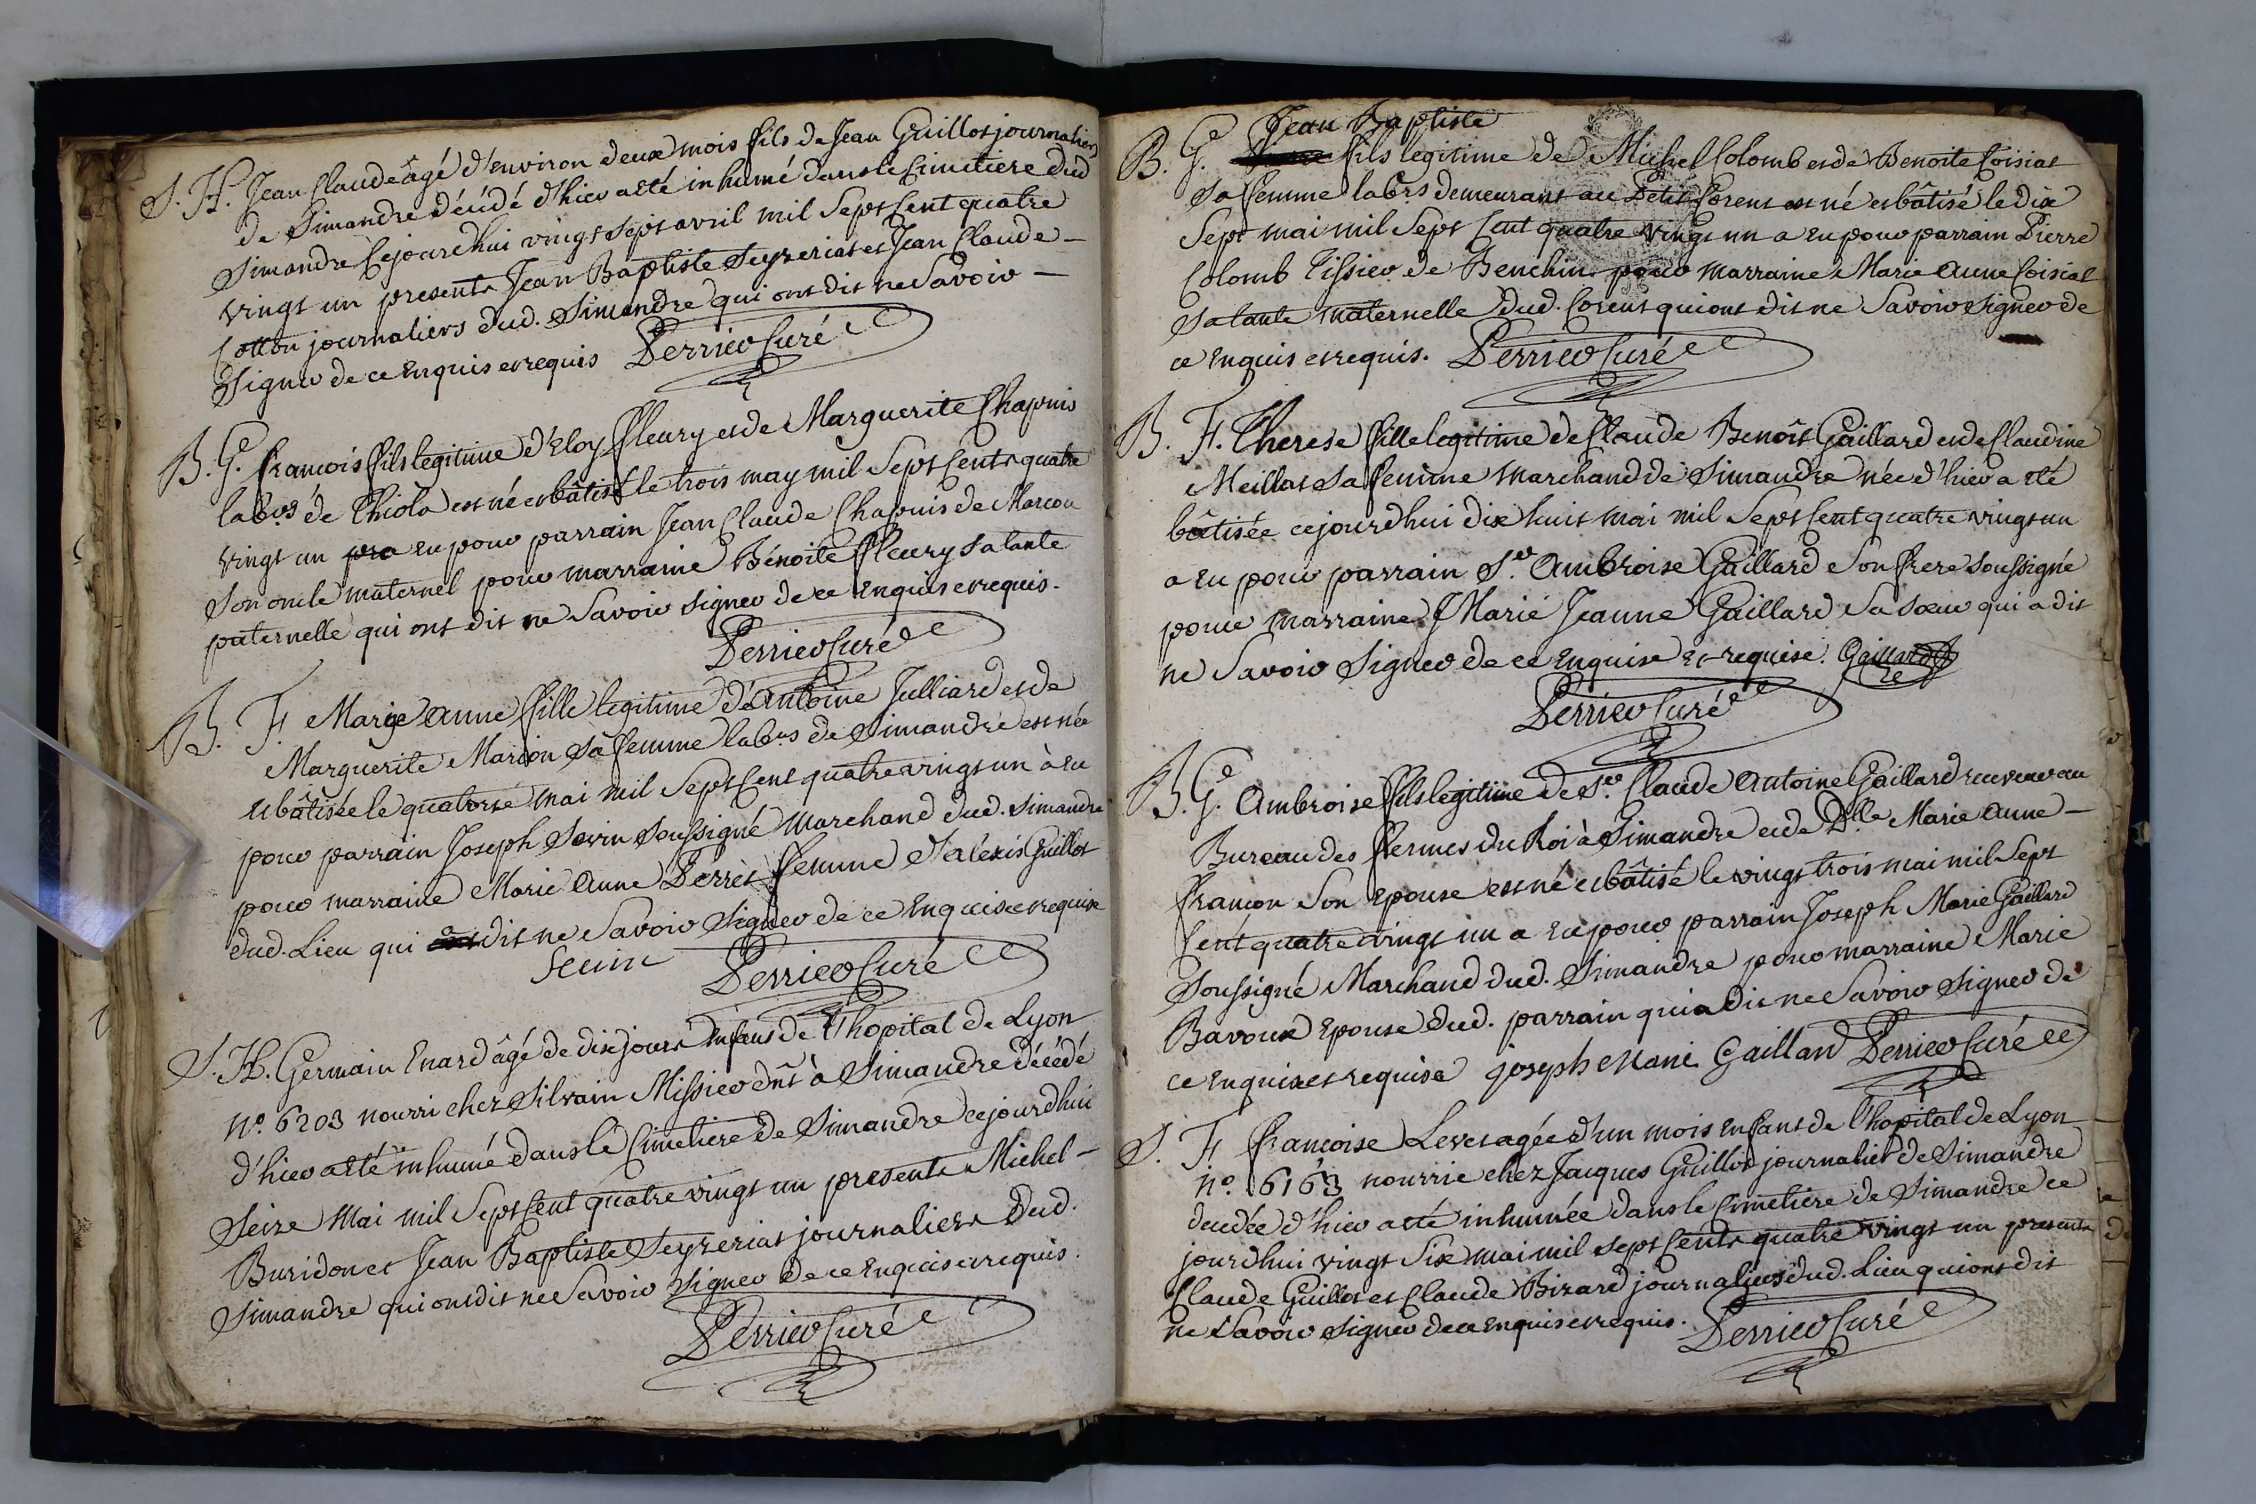 S. H. Jean Claude âgé d'environ deux mois fils de Jean Guillot journalier
de Simandre décédé d'hier a eté inhumé dans le Cimetiere dud
Simandre Cejourdhui vingt sept avril mil sept Cent quatre
vingt un presents Jean Baptiste Seyzeriat et Jean Claude
Cotton journaliers dud. Simandre qui ont dit ne Savoir
Signer de ce Enquis et requis Perrier Curé
B. G. francois fils legitime d'Eloy fleury et de Marguerite Chapuis
labrs de Thiola est né et bâtisé le trois may mil Sept Cents quatre
vingt un pra eu pour parrain Jean Claude Chapuis de Marcou
Son oncle maternel pour marraine Benoite fleury sa tante
paternelle qui ont dit ne Savoir signer de ce Enquis et requis.
Perrier Curé
B. F. Marie Anne fille legitime d'Antoine Julliard et de
Marguerite Marion sa femme labrs de Simandre est née
et bâtisée le quatorse mai mil Sept Cent quatre vingt un à eu
pour parrain Joseph Sevin Soussigné Marchand dud. Simandre
pour marraine Marie Anne Perret femme d'alexis Guillot
dud. Lieu qui a dit ne Savoir Signer de ce Enquise et requise
Sevin Perrier Curé
S. H. Germain Enard âgé de dix jours enfant de l'hopital de Lyon
no. 6203 nourri chez Silvain Missier dnt à Simandre décédé
d'hier a eté inhumé dans le Cimetiere de Simandre cejourdhui
Seize Mai mil Sept Cent quatre vingt un presents Michel
Buridon et Jean Baptiste Seyzeriat journaliers dud.
Simandre qui ont dit ne Savoir signer de ce Enquis et requis.
Perrier Curé
Jean Baptiste
B. G. fils legitime de Michel Colomb et de Benoite Coisiat
Sa femme labrs demeurant au Petit Corent est né et bâtisé le dix
Sept mai mil Sept Cent quatre vingt un a eu pour parrain Pierre
Colomb Tissier de Benchin pour marraine Marie Anne Coisiat
sa tante maternelle dud. Corent qui ont dit ne Savoir Signer de
ce Enquis et requis. Perrier Curé
B. F. Therese fille legitime de Claude Benoît Gaillard et de Claudine
Meillat Sa femme Marchand de Simandre née d'hier a eté
bâtisée cejourdhui dix huit mai mil Sept Cent quatre vingt un
a eu pour parrain Sr. Ambroise Gaillard Son frere Soussigné
pour marraine Marie Jeanne Gaillard Sa soeur qui a dit
ne Savoir Signer de ce Enquise et requise. Gaillard
Perrier Curé
B. G. Ambroise fils legitime de Sr. Claude Antoine Gaillard receveur au
Bureau des fermes du Roi à Simandre et de Dlle Marie Anne
françon Son Epouse est né et bâtisé le vingt trois mai mil Sept
Cent quatre vingt un a eu pour parrain Joseph Marie Gaillard
Soussigné Marchand dud. Simandre pour marraine Marie
Bavoux Epouse dud. parrain qui a dit ne Savoir Signer de
ce enquise et requise joseph Marie Gaillard Perrier Curé
S. F. francoise Levet agée d'un mois enfant de l'hopital de Lyon
no. 6163 nourrie chez Jacques Guillot journalier de Simandre
decedée d'hier a eté inhumée dans le Cimetiere de Simandre ce
jourdhui vingt Six mai mil sept Cents quatre vingt un presents
Claude Guillot et Claude Birard journaliers dud. Lieu qui ont dit
ne Savoir Signer de ce enquis et requis. Perrier Curé